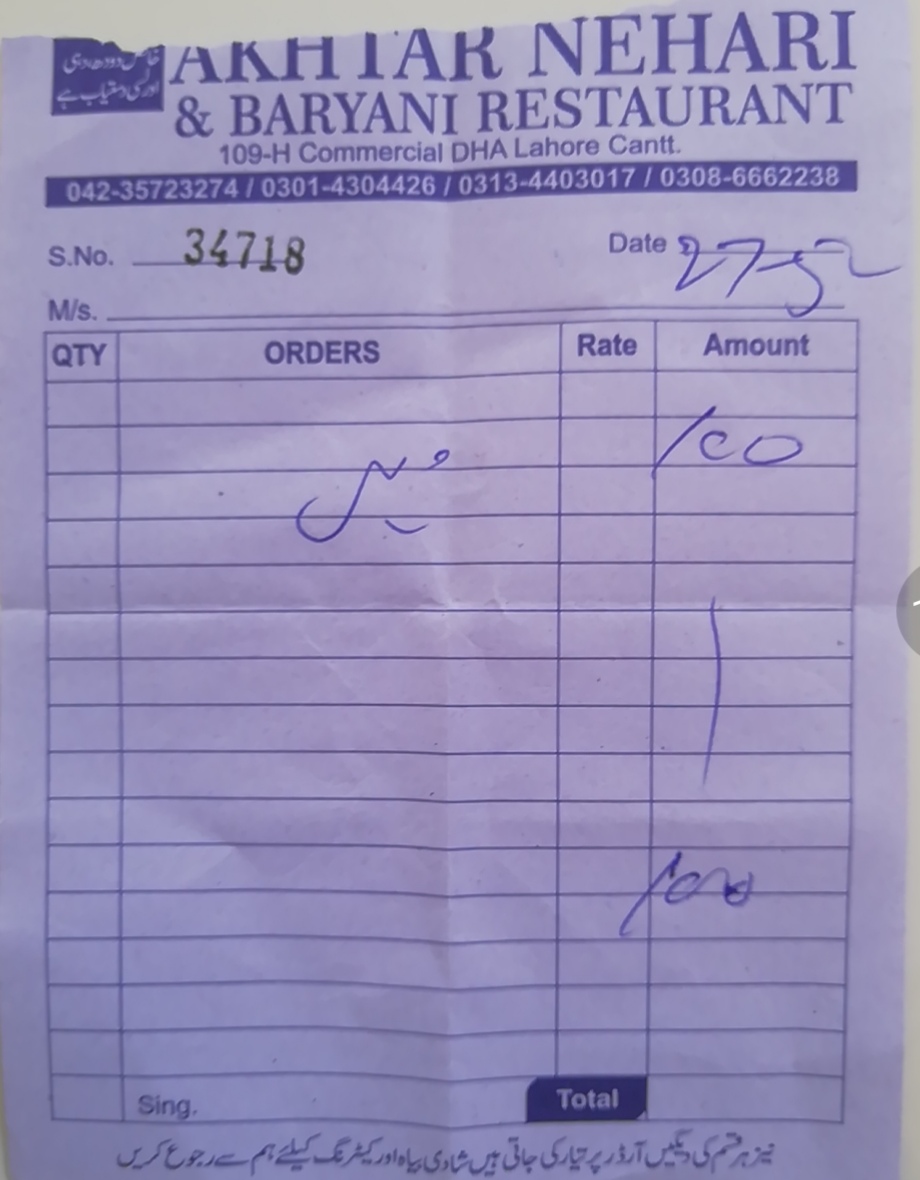 خالص دودھ دہی
اور لسی دستیاب ہے
AKHTAR NEHARI
& BARYANI RESTAURANT
109-H Commercial DHA Lahore Cantt.
042-35723274 / 0301-4304426 / 0313-4403017 / 0308-6662238
S.No. 34718
Date 27-5-2
M/s.
QTY ORDERS Rate Amount
100
100
Sing. Total
نیز ہر قسم کی دیگیں آرڈر پر تیار کی جاتی ہیں شادی بیاہ اور کیٹرنگ کیلئے ہم سے رجوع کریں